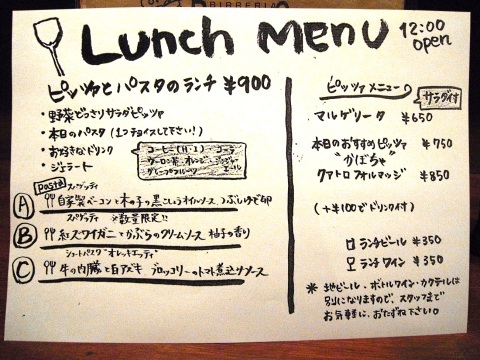 BIRRERIA
Lunch Menu
12:00 open
ピッツァとパスタのランチ ¥900
・野菜どっさりサラダピッツァ
・本日のパスタ (1つチョイスして下さい!)
・お好きなドリンク
コーヒー(H・I)・コーラ
ウーロン茶・オレンジ・ジンジャーエール
グレープフルーツ
・ジェラート
pasta
スパゲッティ
A 自家製ベーコンと木の子の黒こしょうオイルソース つぶしゆで卵
スパゲッティ ※数量限定!!
B 紅ズワイガニとかぶらのクリームソース 柚子の香り
ショートパスタ"オレッキエッティ"
C 牛の内臓と白アズキ ブロッコリーのトマト煮込みソース
ピッツァメニュー
サラダ付
マルゲリータ ¥650
本日のおすすめピッツァ ¥750
"かぼちゃ"
クアトロフォルマッジ ¥850
(+¥100でドリンク付)
ランチビール ¥350
ランチワイン ¥350
※ 地ビール・ボトルワイン・カクテルは
別になりますので、スタッフまで
お気軽に、おたずね下さい。